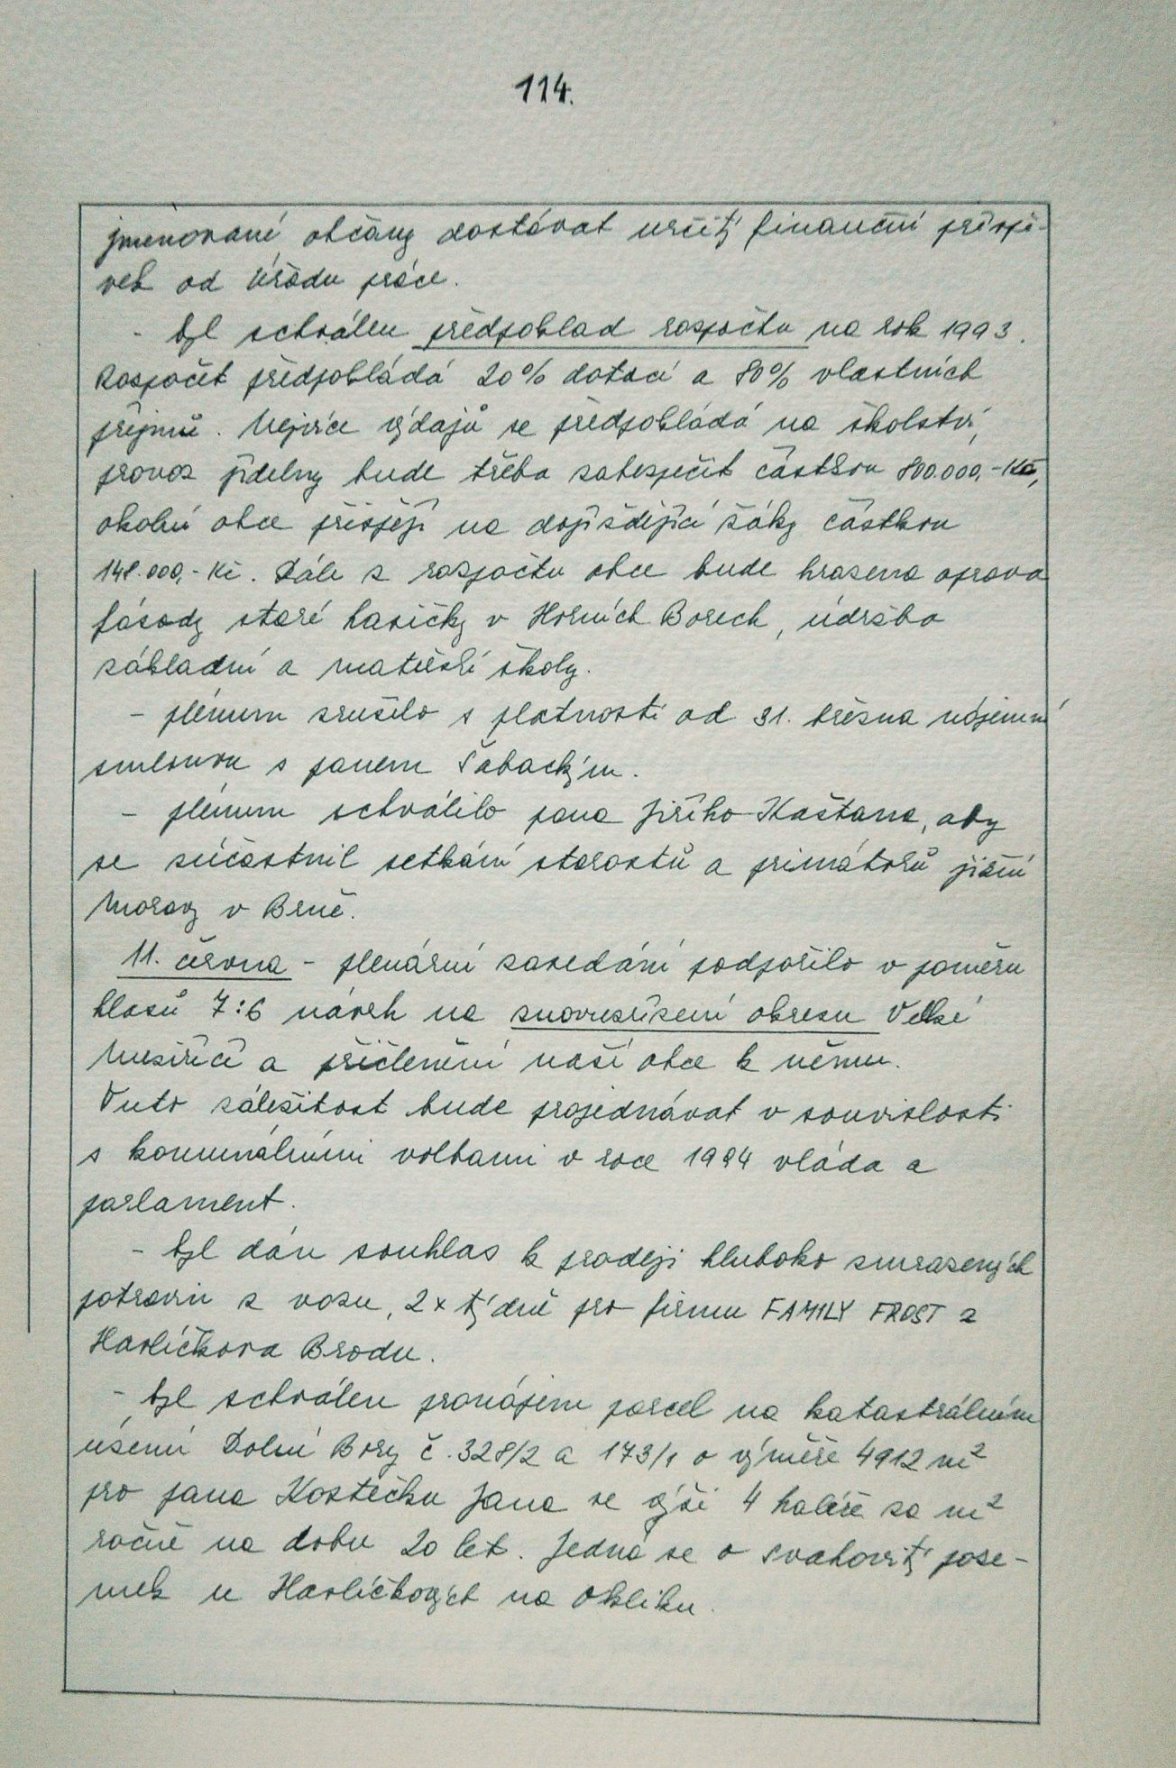 114.
jmenované občany dostávat určitý finanční příspě-
vek od Úřadu práce.
- byl schválen předpoklad rozpočtu na rok 1993.
Rozpočet předpokládá 20% dotací a 80% vlastních
příjmů. Nejvíce výdajů se předpokládá na školství,
provoz jídelny bude třeba zabezpečit částkou 800.000,-Kč,
okolní obce přispějí na dojíždějící žáky částkou
148.000,-Kč. Dále z rozpočtu obce bude hrazena oprava
fasády staré hasičky v Horních Borech, údržba
základní a mateřské školy.
- plénum zrušilo s platností od 31. března nájemní
smlouvu s panem Šabackým.
- plénum schválilo pana Jiřího Kaštana, aby
se zúčastnil setkání starostů a primátorů jižní
Moravy v Brně.
11. června - plenární zasedání podpořilo v poměru
hlasů 7:6 návrh na znovuzřízení okresu Velké
Meziříčí a přičlenění naší obce k němu.
Tuto záležitost bude projednávat v souvislosti
s komunálními volbami v roce 1994 vláda a
parlament.
- byl dán souhlas k prodeji hluboko zmrazených
potravin z vozu, 2x týdně pro firmu FAMILY FROST z
Havlíčkova Brodu.
- byl schválen pronájem parcel na katastrálním
území Dolní Bory č. 328/2 a 173/1 o výměře 4912 m²
pro pana Kostečku Jana ve výši 4 haléře za m²
ročně na dobu 20 let. Jedná se o svahovitý poze-
mek u Havlíčkových na Okliku.